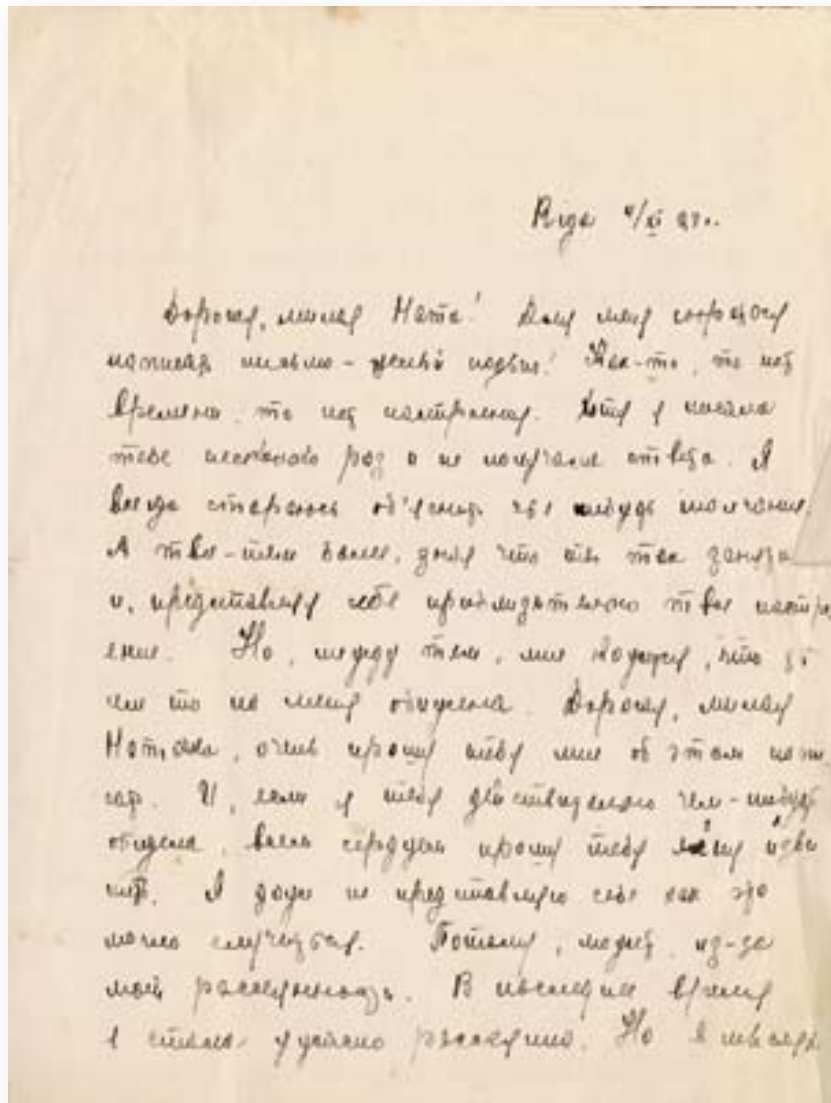 Riga
Дорогая, милая Ната! Для меня собраться
написать письмо - целый подвиг! Как-то, то нет
времени, то нет настроения. Хотя я писала
тебе несколько раз и не получала ответа. Я
всегда стараюсь об'яснить чье нибудь молчание.
А твое - тем более, зная что ты так занята
и, представляя себе приблизительно твое настро
ение. Но, между тем, мне кажется, что ты
чем то на меня обижена. Дорогая, милая
Наташа, очень прошу тебя мне об этом напи
сать. И, если я тебя действительно чем-нибудь
обидела, всем сердцем прошу тебя меня изви
нить. Я даже не представляю себе как это
могло случиться. Потому, может, из-за
моей рассеянности. В последнее время
я стала ужасно рассеянна. Но в